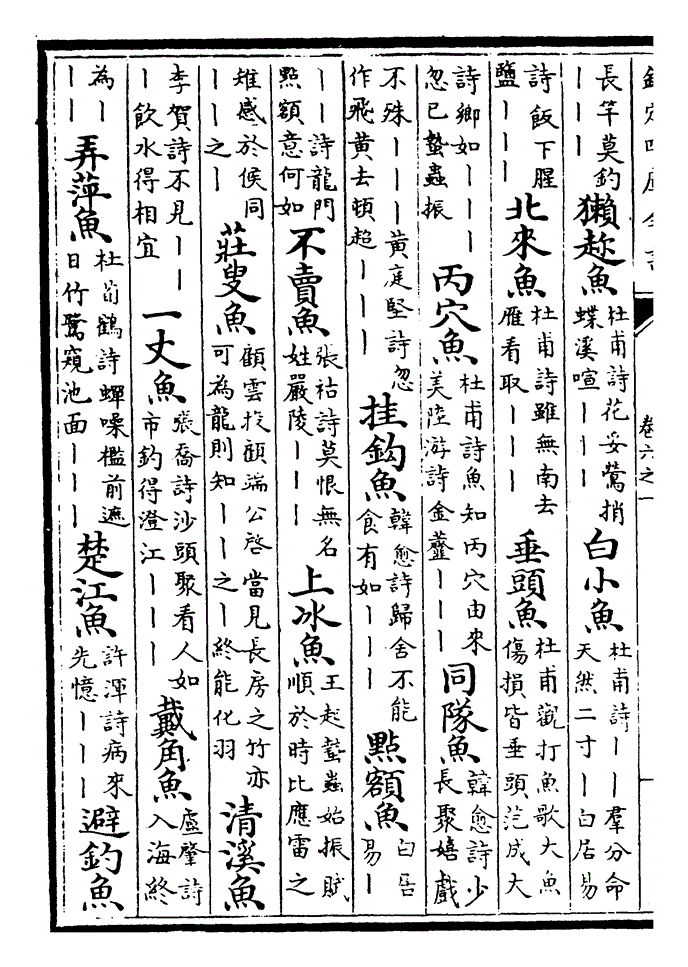 欽定四庫全書 卷六之一
長竿莫釣｜｜｜獺趂魚杜甫詩花妥鶯捎蝶溪喧｜｜｜白小魚杜甫詩｜｜羣分命天然二寸｜白居易
詩飯下腥鹽｜｜｜北來魚杜甫詩雖無南去雁看取｜｜｜垂頭魚杜甫觀打魚歌大魚傷損皆垂頭汔成大
詩鄉如｜｜｜忽已蟄蟲振丙穴魚杜甫詩魚知丙穴由來美陸游詩金虀｜｜｜同隊魚韓愈詩少長聚嬉戲
不殊｜｜｜黄庭堅詩忽作飛黄去頓超｜｜｜挂鈎魚韓愈詩歸舍不能食有如｜｜｜點額魚白居易｜
｜｜詩龍門點額意何如不賣魚張祜詩莫恨無名姓嚴陵｜｜｜上冰魚王起蟄蟲始振賦順於時比應雷之
雉感於候同｜｜之｜莊叟魚顧雲投顧端公啓當見長房之竹亦可為龍則知｜｜之｜終能化羽清溪魚
李賀詩不見｜｜｜飲水得相宜一丈魚張喬詩沙頭聚看人如市釣得澄江｜｜｜戴角魚盧肇詩入海終
為｜｜｜弄萍魚杜荀鶴詩蟬噪檻前遮日竹鷺窺池面｜｜｜楚江魚許渾詩病來先憶｜｜｜避釣魚